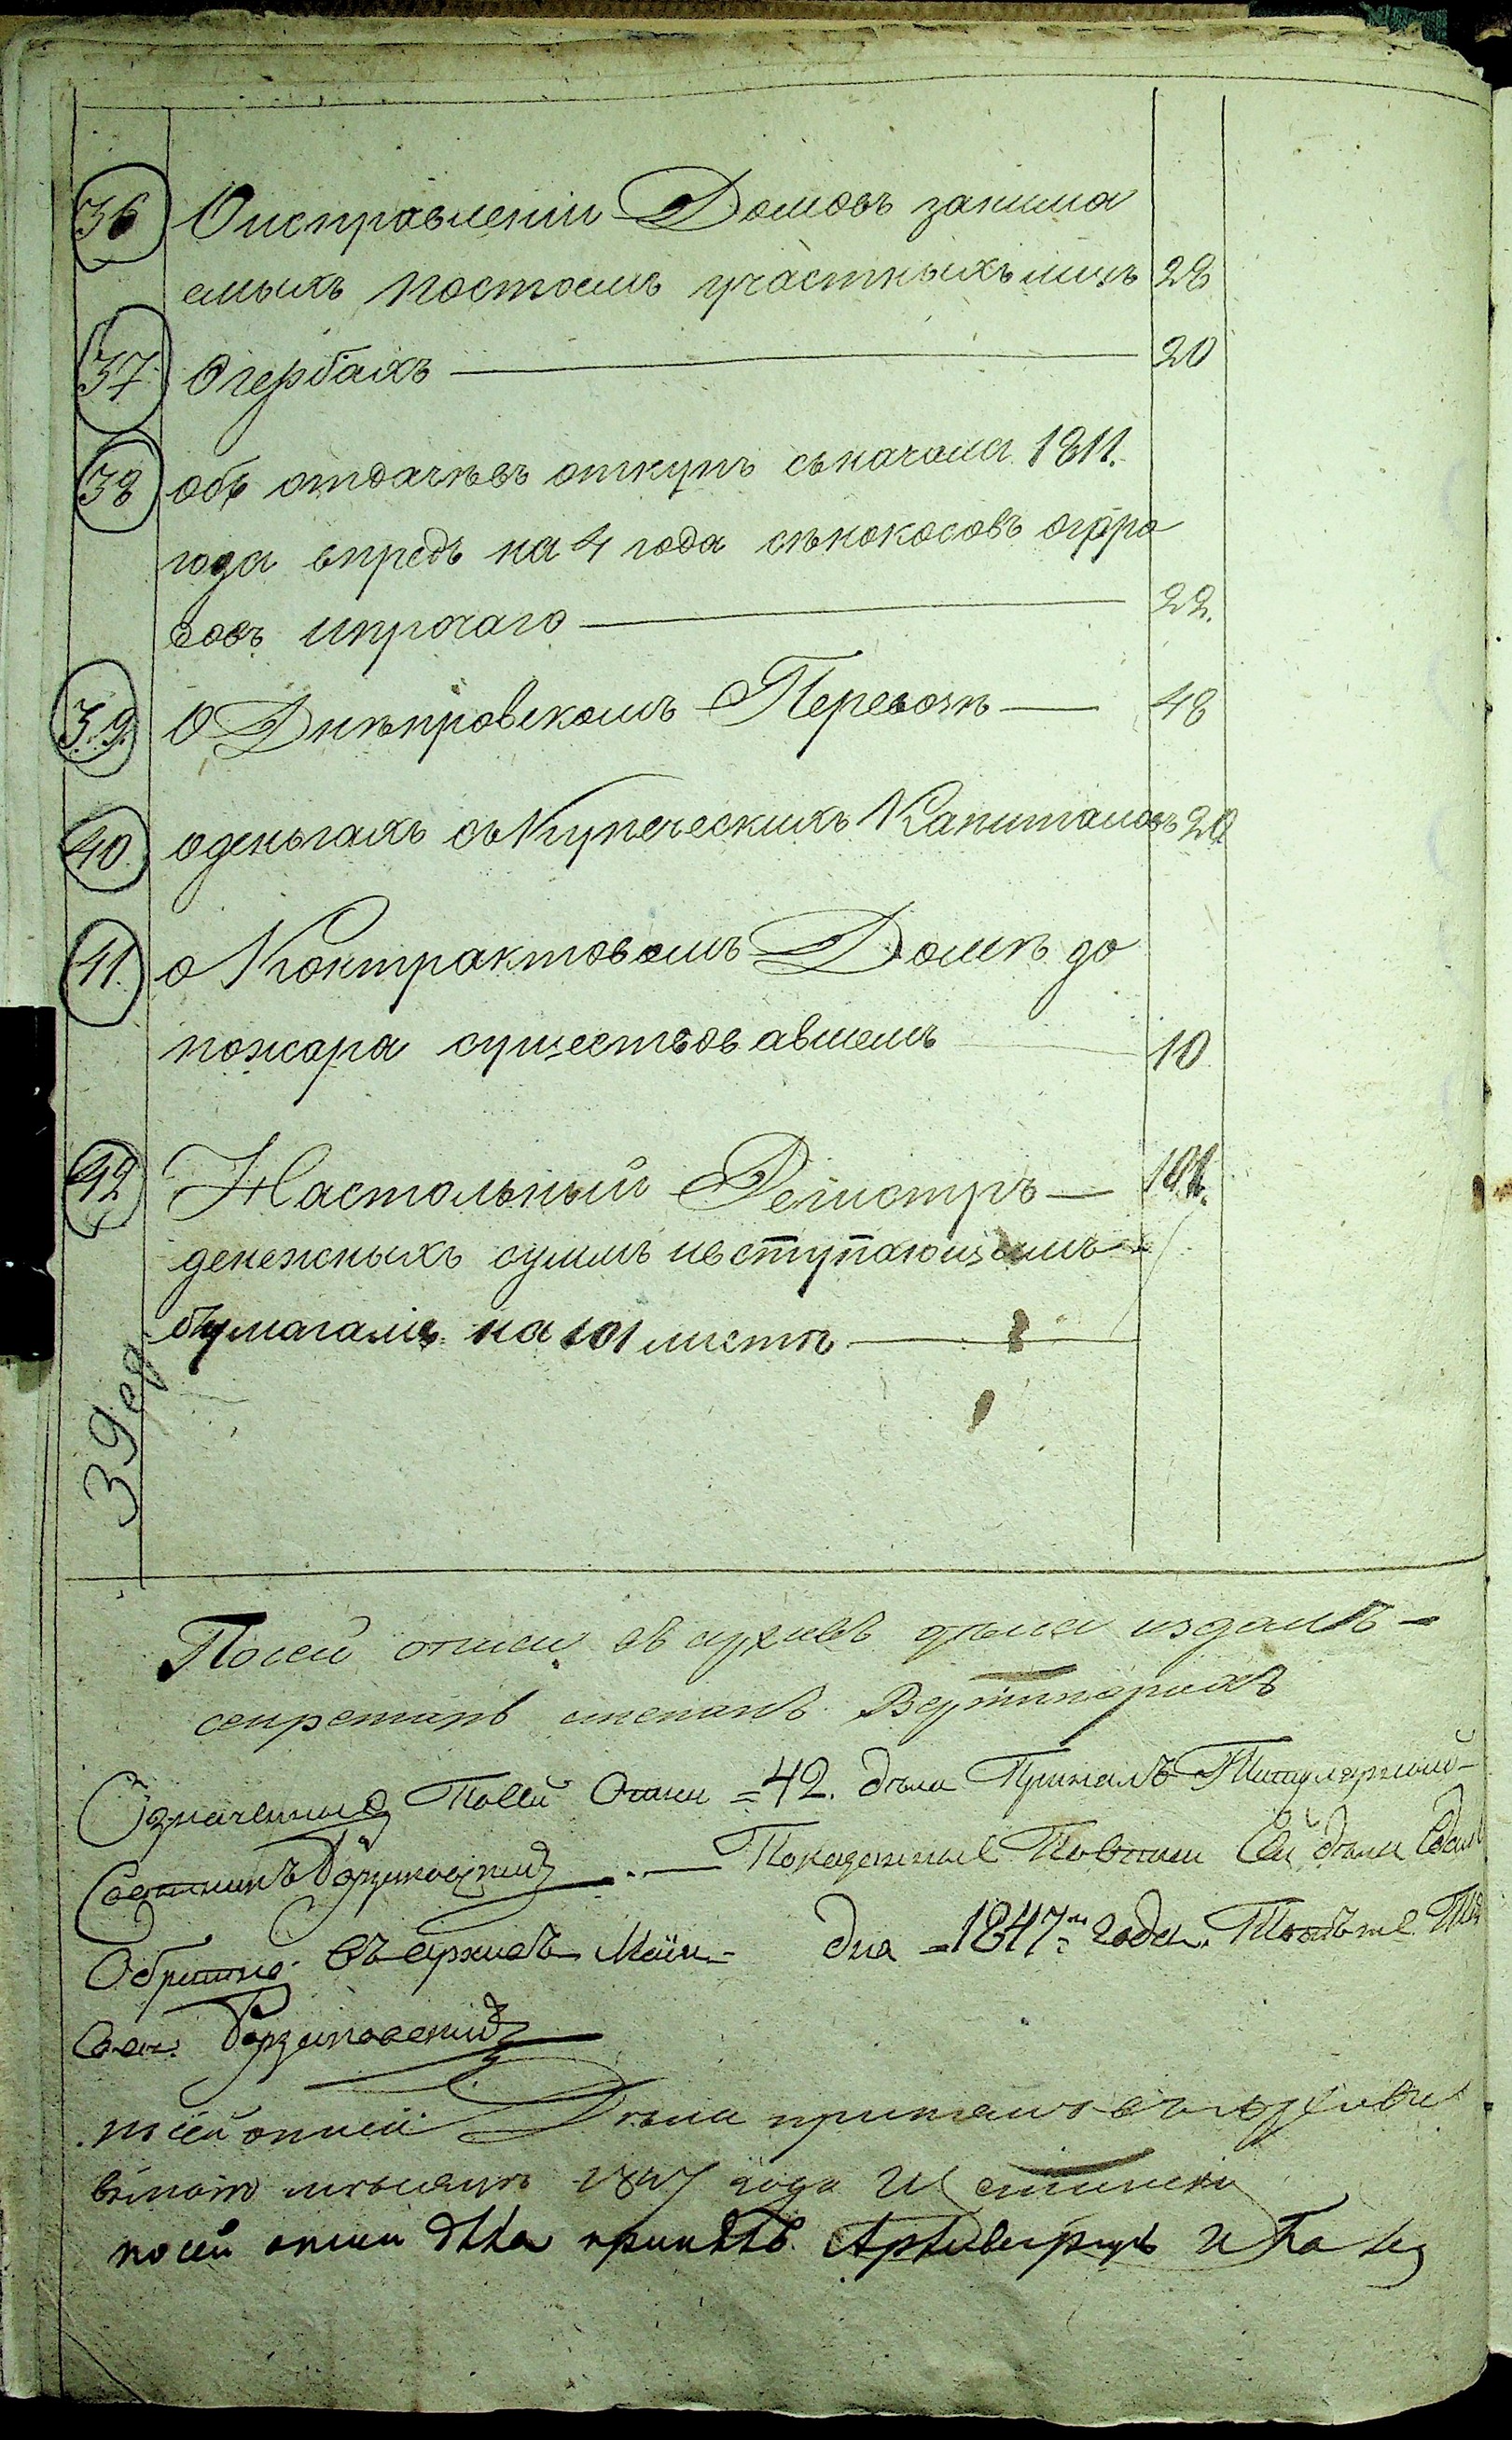 36 О исправленіи Домовъ занима
емыхъ постоемъ участныхъ лицъ 28
37 О гербахъ — 20
38 объ отдачѣ въ откупъ съ начала 1811.
года впредь на 4 года сѣнокосовъ огоро
довъ и прочаго — 22.
39. О Днѣпровскомъ Перевозѣ — 48
40. о деньгахъ съ Купеческихъ Капиталовъ 20
41. о Контрактовомъ Домѣ до
пожара существовавшемъ 10
42 Настольный Регистръ — 101.
денежныхъ суммъ и вступающимъ
бумагамъ на 101 листѣ —
39 ед
По сей описи въ архивъ дѣла издалъ —
секретарь
Означенные По сей Описи = 42. дѣла Принялъ Титулярный
Советникъ Борзаковский . — Показанные По описи Сей дѣла Сдалъ
Обратно въ архивъ Маiя - дня = 1847 = года. Тотъ же Ти
Сов. Борзаковский
по сей описи Дѣла принялъ въ архивъ
мѣсяцѣ 1847 года
по сей описи дѣла принялъ Архиваріусъ